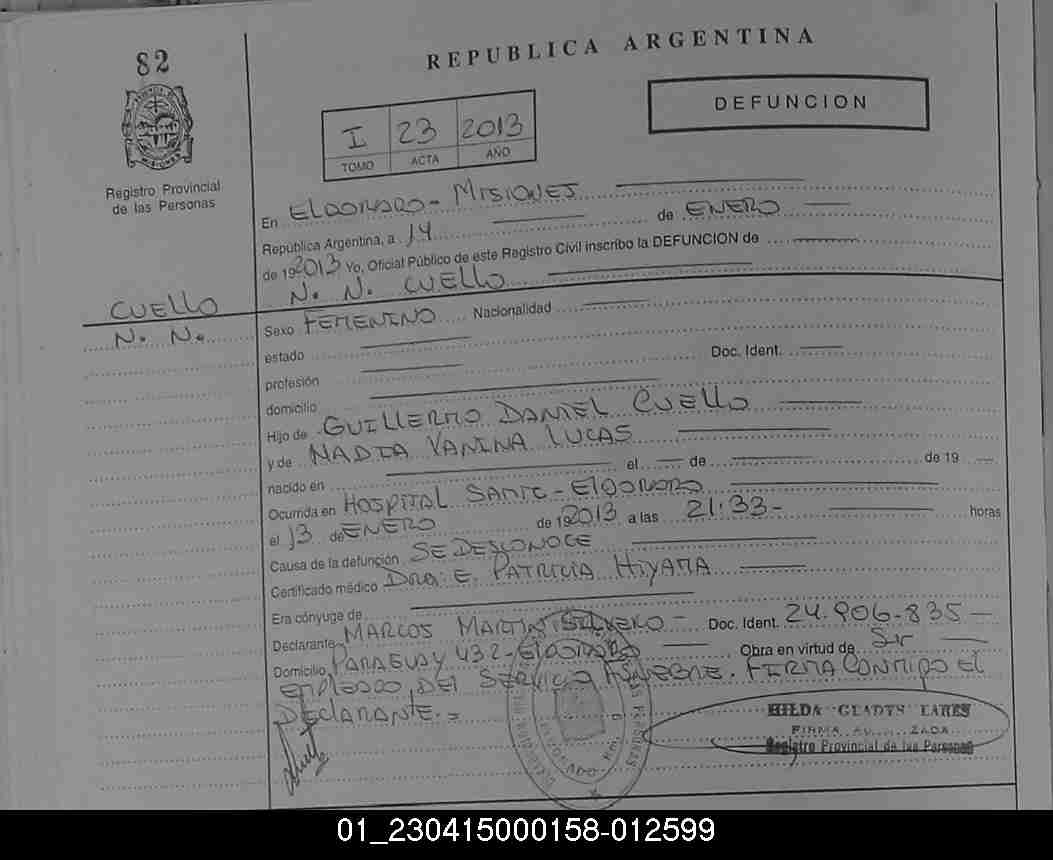 82
REPUBLICA ARGENTINA
DEFUNCION
I 23 2013
TOMO ACTA AÑO
Registro Provincial
de las Personas
En ELDORADO - MISIONES
República Argentina, a 14 de ENERO
de 192013 Yo, Oficial Público de este Registro Civil inscribo la DEFUNCION de
N. N. CUELLO
CUELLO
N. N.
Sexo FEMENINO Nacionalidad
estado
profesión Doc. Ident.
domicilio
Hijo de GUILLERMO DANIEL CUELLO
y de NADIA YANINA LUCAS
nacido en el de de 19
Ocurrida en HOSPITAL SAMIC - ELDORADO
el 13 de ENERO de 192013 a las 21:33- horas
Causa de la defunción SE DESCONOCE
Certificado médico DRA: E. PATRICIA HIYAMA
Era cónyuge de
Declarante MARCOS MARTIN Doc. Ident. 24.906.835
Domicilio PARAGUAY 432-ELDORADO Obra en virtud de Sir
EMPLEADO DEL SERVICIO FUNEBRE. FIRMA CONMIGO El
DECLARANTE.=
HILDA GLADYS LARES
FIRMA
Registro Provincial de las Personas
01_230415000158-012599